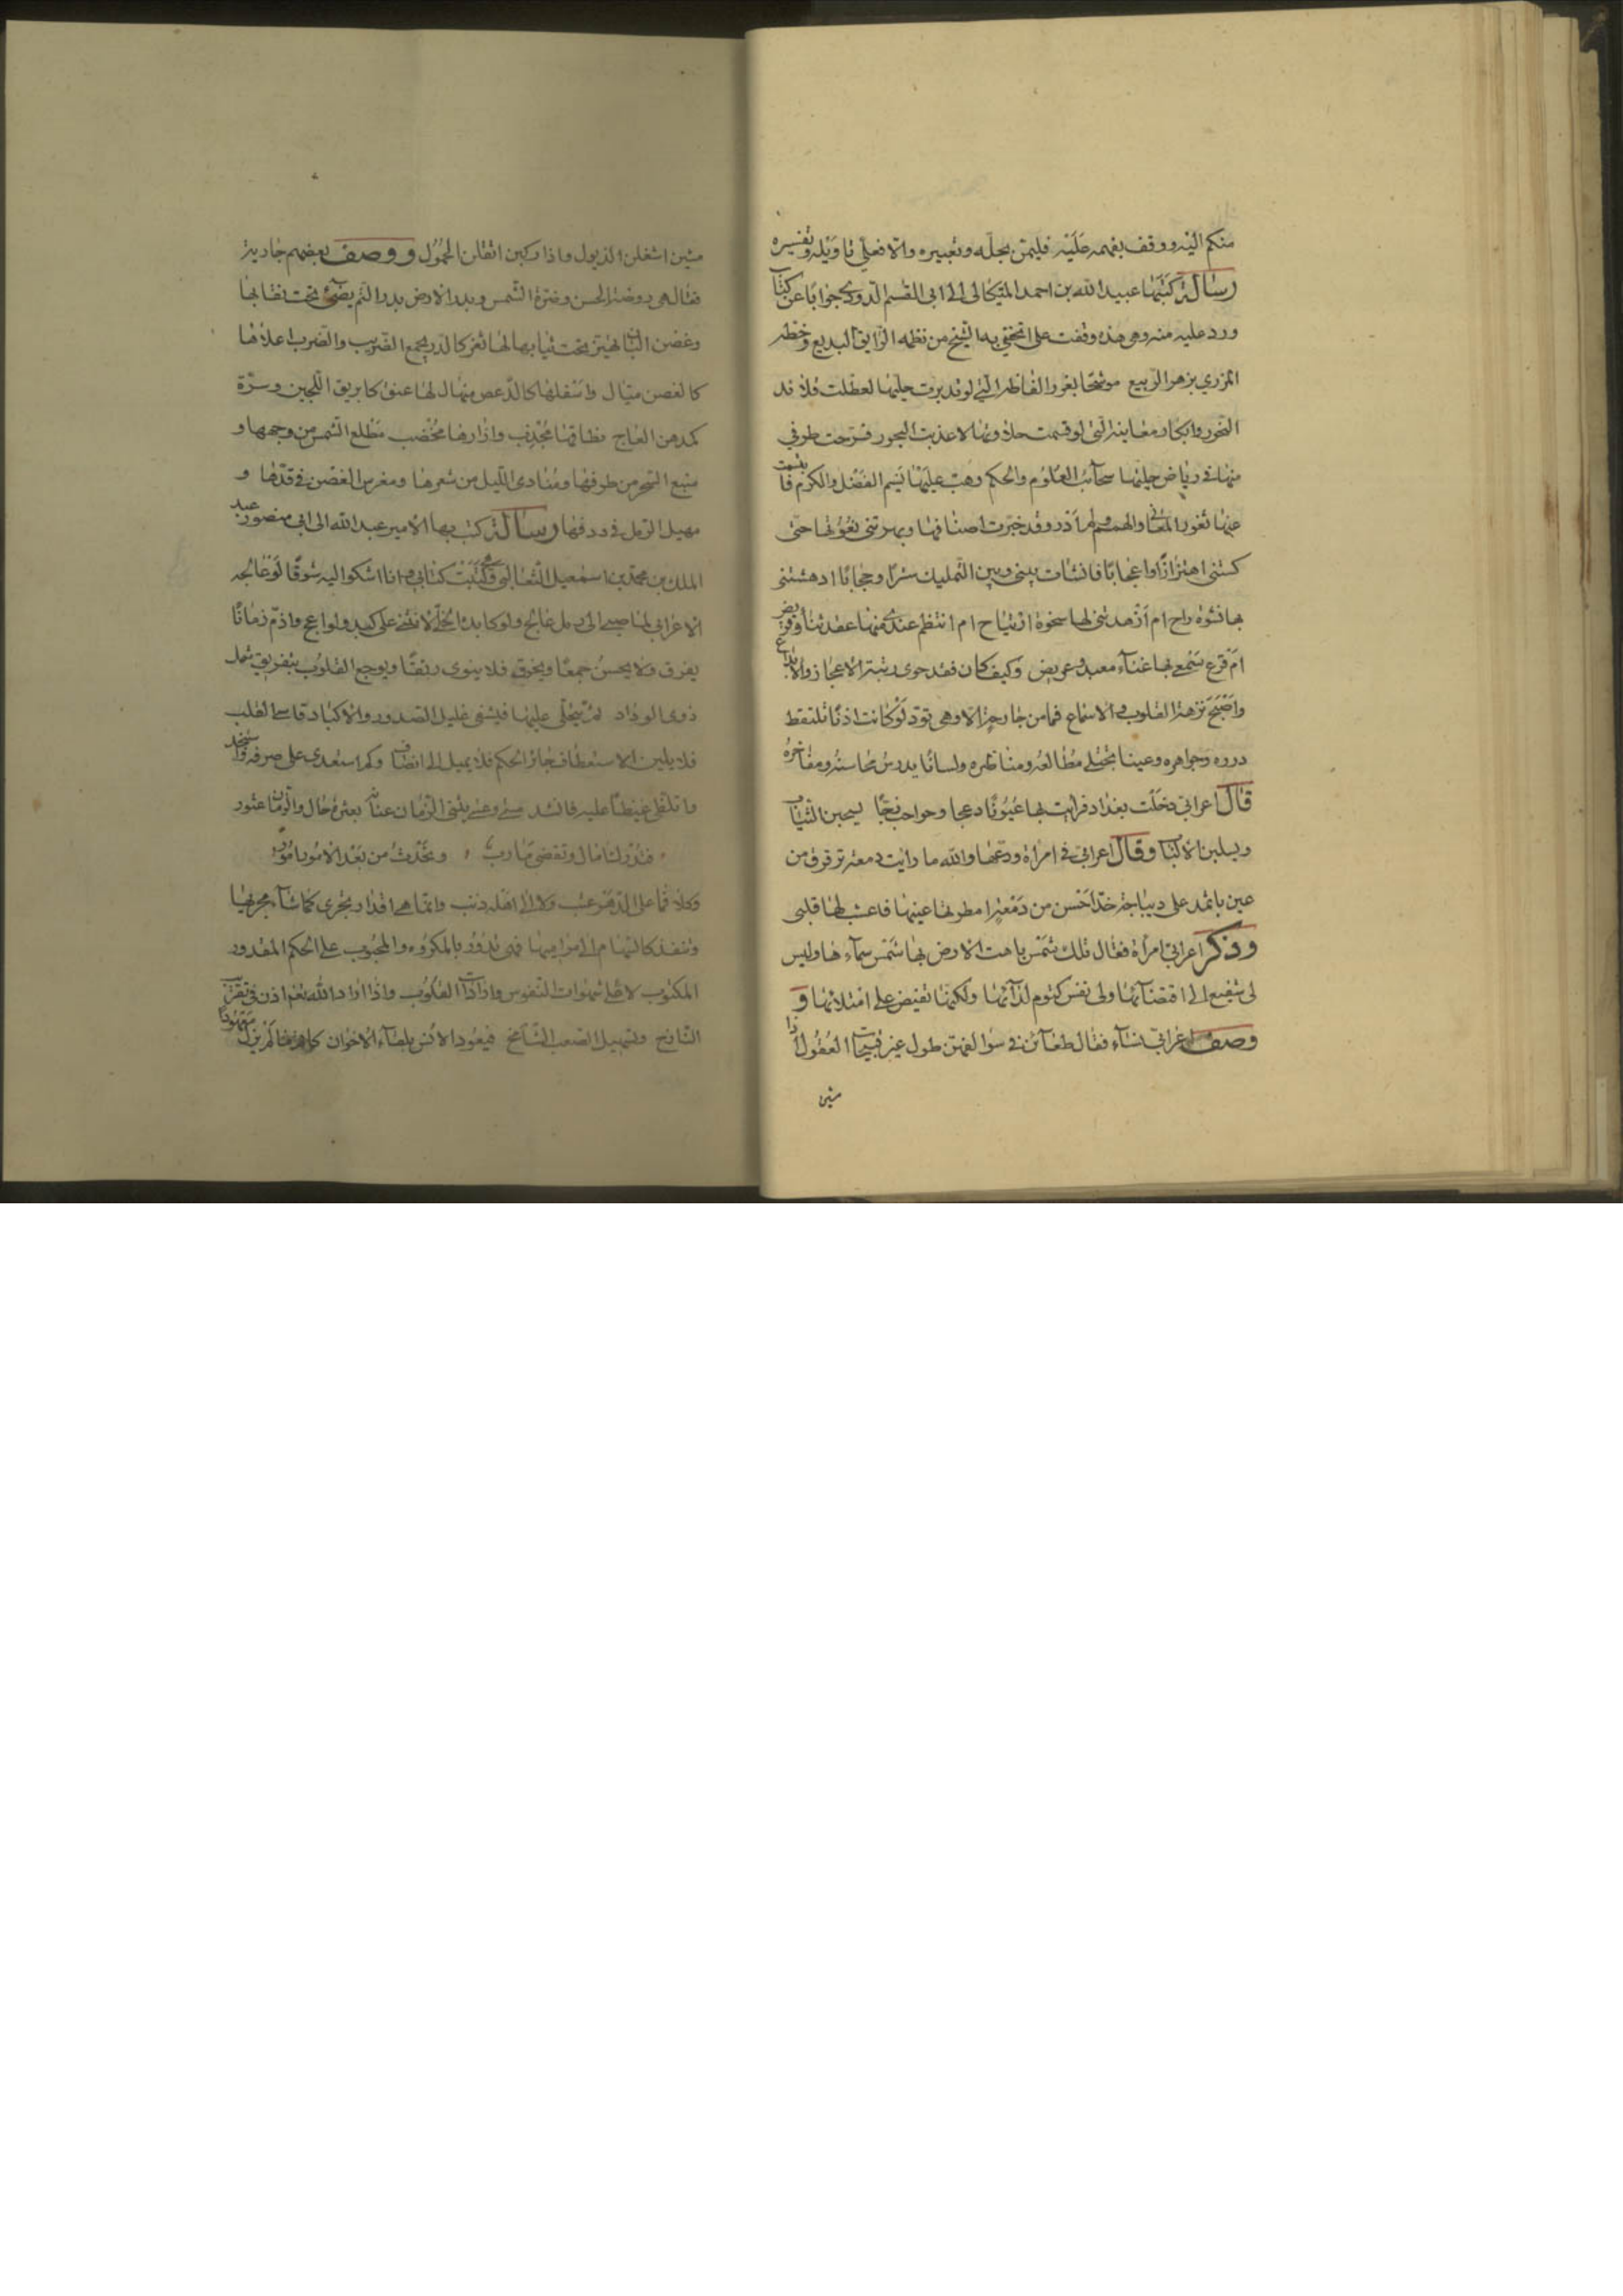 منكم اليه ووقف بفهمه عليه فليمن بحله وتعبيره والا فعلي تاويله وتفسيره
رسالة كتبها عبيد الله بن احمد الميكالى الى ابى القسم الداودى جوابا عن كتاب
ورد عليه منه وهى هذه وقفت على ما اتحفنى به الشيخ من نظمه الرايق البديع وخطه
المزري بزهر الربيع موشحا بغرر الفاظه التى لو اعيرت حليتها لعطلت قلائد
النحور وابكار معانيه التى لو قسمت حلاوتها لاعذبت البحور فسرحت طرفي
منها فى رياض جلبتها سحائب العلوم والحكم وهب عليها نسيم الفضل والكرم
عنها ثغور المعانى والهمم ولم ادر وقد خبرت اصنافها وبهرتنى نعوتها حتى
كستنى اهتزازا واعجابا فانشات بينى وبين التمليك سترا وحجابا ادهشتنى
بها نشوة راح ام ازهدتنى لها سخوة ارتياح ام انتظم عندى منها عقد ثنا وقريض
ام قرع سمعى بها غناء معبد وغريض وكيف كان فقد حوى رتبة الاعجاز والابداع
واصبح نزهة القلوب والاسماع فما من جارحة الا وهى تود لو كانت اذنا تلتقط
درره وجواهره وعينا تجتلى مطالعه ومناظره ولسانا يدرس محاسنه ومفاخره
قال اعرابى دخلت بغداد فرايت بها عيونا دعجا وحواجب زجا يسحبن الثياب
ويسلبن الالباب وقال اعرابى فى امراة ودعها والله ما رايت دمعة ترقرق من
عين باثمد على ديباجة خد احسن من دمعة امطرتها عينها فاعشب لها قلبى
وذكر اعرابى امراة فقال تلك شمس باهت الارض بها شمس سماءها وليس
لى شفيع الى اقتضائها ولى نفس كتوم لدائها ولكنها تفيض على امتلائها و
وصف اعرابى نساء فقال ظعائن فى سوالفهن طول غير قبيحات العقول اذا
مشين
مشين اشغلن الذيول واذا ركبن اثقلن الحمول ووصف بعضهم جارية
فقال هى روضة الحسن وضرة الشمس وبدر الارض بدر التم يضئ تحت نقابها
وغصن البان يهتز تحت ثيابها لها ثغر كالدر يجمع الضريب والضرب اعلاها
كالغصن ميال واسفلها كالدعص منهال لها عنق كابريق اللجين وسرة
كمدهن العاج نطاقها مجدب وازارها مخصب مطلع الشمس من وجهها و
منبع السحر من طرفها ومبادى الليل من شعرها ومغرس الغصن فى قدها و
مهيل الرمل فى ردفها رسالة كتب بها الامير عبيد الله الى ابى منصور عبد
الملك بن محمد بن اسمعيل الثعالبى كتابى وانا اشكو اليه شوقا لو عالجه
الاعرابى لما صبى الى رمل عالج ولو كابده الخلى لانثنى على كبد ولواعج واذم زمانا
يفرق ولا يحسن جمعا ويخرق فلا ينوى رتقا ويوجع القلوب بتفريق شمل
ذوى الوداد ثم يبخل عليها فيشفى غليل الصدور والاكباد قاسى القلب
فلا يلين لاستعطاف جائر الحكم فلا يميل الى انصاف وكم استعدى على صرفه واستنجد
واتلظى غيظا عليه فانشد عسى وعسى يثنى الزمان عنانه بعثرة حال والزمان عثور
فتدرك امال وتقضى مارب ، وتحدث من بعد الامور امور
وكلا فما على الدهر عتب ولا الى اهله ذنب وانما هى اقدار تجرى كما شاء مجريها
وتنفذ كالسهام الى مراميها فهى تدور بالمكروه والمحبوب على الحكم المقدور
المكتوب لا على شهوات النفوس وارادات القلوب واذا اراد الله نعم اذن فى تقريب
النازح وتسهيل الصعب الشامخ فيعود الانس بلقاء الاخوان كما لم يزل معهودا